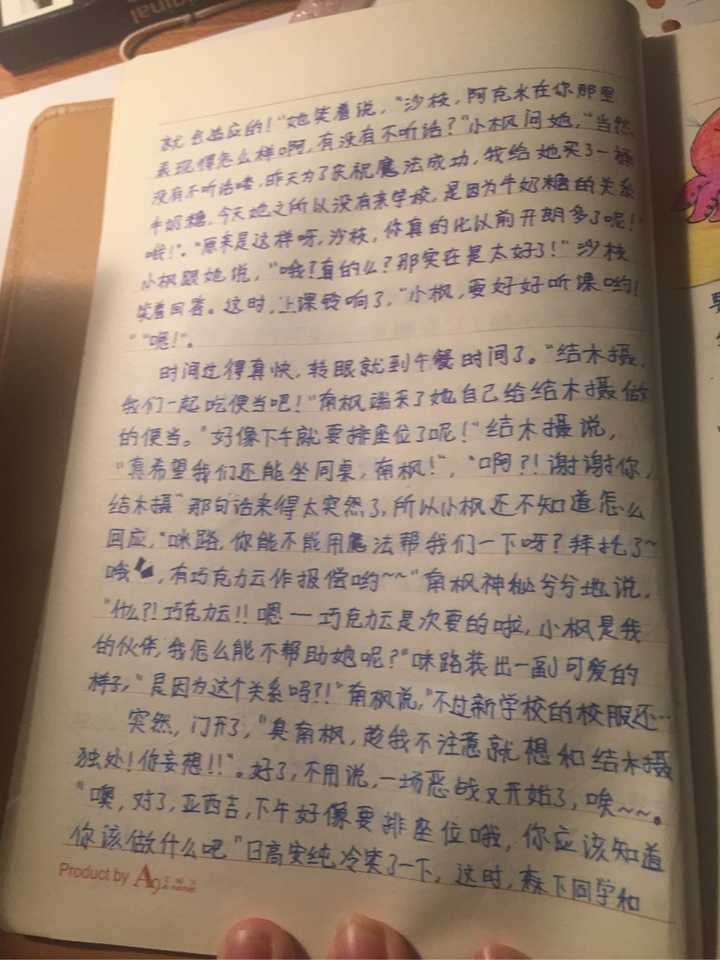 就会适应的！"她笑着说，"沙枝，阿克水在你那里
表现得怎么样啊，有没有不听话？"小枫问她，"当然
没有不听话喽，昨天为了庆祝魔法成功，我给她买了一桶
牛奶糖，今天她之所以没有来学校，是因为牛奶糖的关系
哦！"。"原来是这样呀，沙枝，你真的比以前开朗多了呢！"
小枫跟她说，"哦？真的么？那实在是太好了！"沙枝
笑着回答。这时，上课铃响了，"小枫，要好好听课哟！
""嗯！"。
时间过得真快，转眼就到午餐时间了。"结木摄，
我们一起吃便当吧！"南枫端来了她自己给结木摄做
的便当。"好像下午就要排座位了呢！"结木摄说，
"真希望我们还能坐同桌，南枫！"，"啊？！谢谢你，
结木摄"那句话来得太突然了，所以小枫还不知道怎么
回应，"咪路，你能不能用魔法帮我们一下呀？拜托了~
哦，有巧克力云作报偿哟~~"南枫神秘兮兮地说，
"什么？！巧克力云！！嗯——巧克力云是次要的啦，小枫是我
的伙伴，我怎么能不帮助她呢？"咪路装出一副可爱的
样子，"是因为这个关系吗？！"南枫说，"不过新学校的校服还…
突然，门开了，"臭南枫，趁我不注意就想和结木摄
独处！你妄想！！"。好了，不用说，一场恶战又开始了，唉~~。
"噢，对了，亚西吉，下午好像要排座位哦，你应该知道
你该做什么吧"日高安纯冷笑了一下，这时，森下同学和
Product by A9